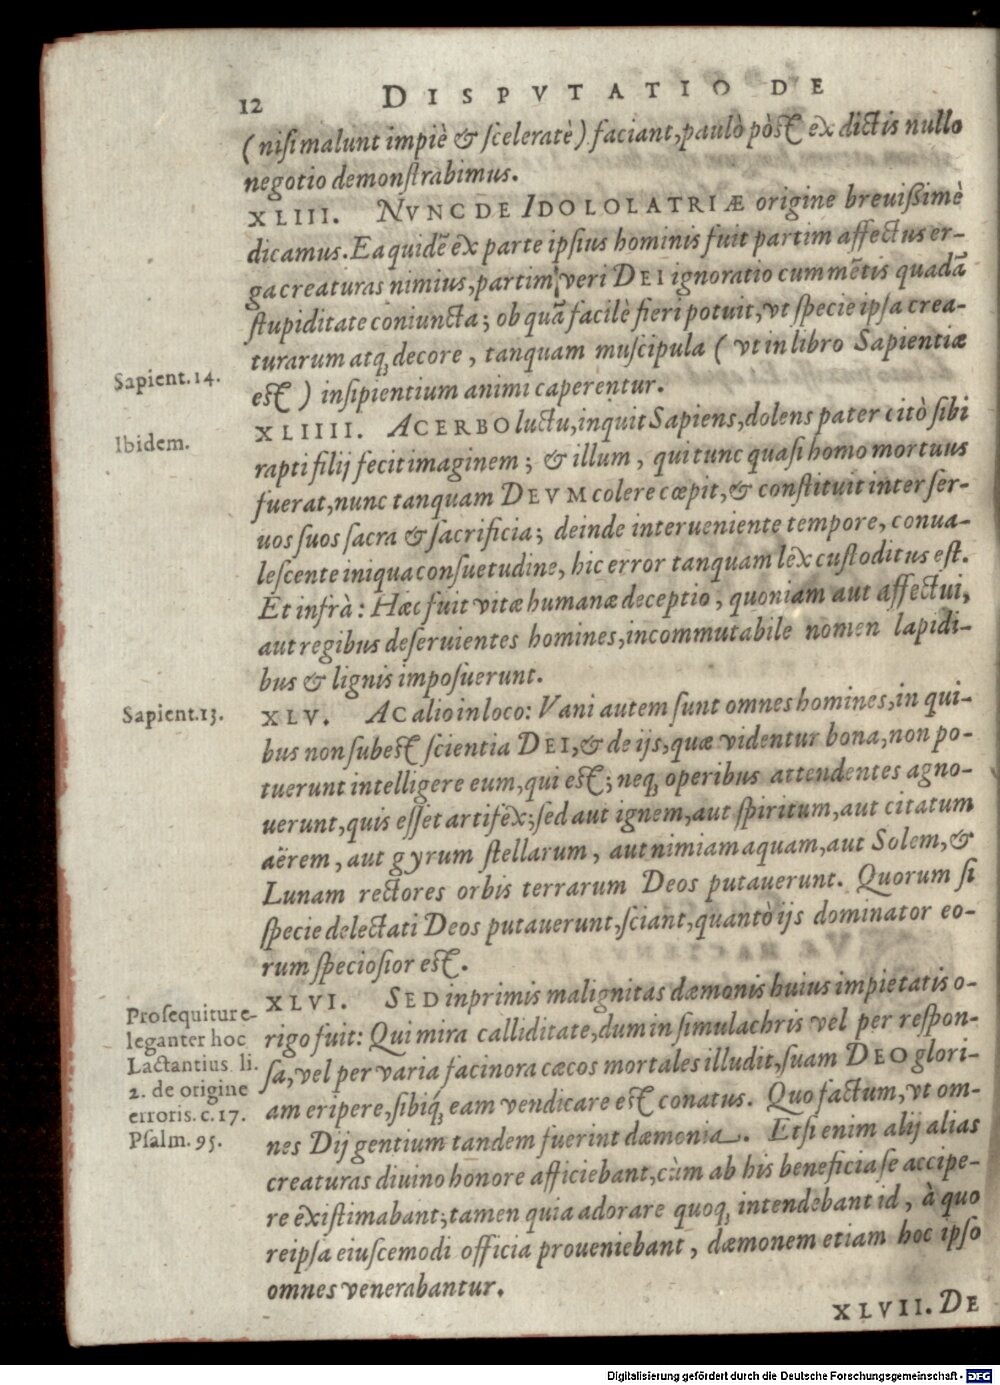 12 DISPVTATIO DE
(nisi malunt impiè & sceleratè) faciant, paulò pòst ex dictis nullo
negotio demonstrabimus.
XLIII. NVNC DE IDOLOLATRIÆ origine breuißimè
dicamus. Ea quidẽ ex parte ipsius hominis fuit partim affectus er-
ga creaturas nimius, partim veri DEI ignoratio cum mẽtis quadã
stupiditate coniuncta; ob quã facilè fieri potuit, vt specie ipsa crea-
turarum atq; decore, tanquam muscipula (vt in libro Sapientiæ
Sapient. 14.
est) insipientium animi caperentur.
XLIIII. ACERBO luctu, inquit Sapiens, dolens pater citò sibi
Ibidem.
rapti filij fecit imaginem; & illum, qui tunc quasi homo mortuus
fuerat, nunc tanquam DEVM colere cœpit, & constituit inter ser-
uos suos sacra & sacrificia; deinde interueniente tempore, conua-
lescente iniqua consuetudine, hic error tanquam lex custoditus est.
Et infrà: Hæc fuit vitæ humanæ deceptio, quoniam aut affectui,
aut regibus deseruientes homines, incommutabile nomen lapidi-
bus & lignis imposuerunt.
Sapient. 13.
XLV. AC alio in loco: Vani autem sunt omnes homines, in qui-
bus non subest scientia DEI, & de ijs, quæ videntur bona, non po-
tuerunt intelligere eum, qui est; neq; operibus attendentes agno-
uerunt, quis esset artifex; sed aut ignem, aut spiritum, aut citatum
aërem, aut gyrum stellarum, aut nimiam aquam, aut Solem, &
Lunam rectores orbis terrarum Deos putauerunt. Quorum si
specie delectati Deos putauerunt, sciant, quantò ijs dominator eo-
rum speciosior est.
XLVI. SED inprimis malignitas dæmonis huius impietatis o-
rigo fuit: Qui mira calliditate, dum in simulachris vel per respon-
sa, vel per varia facinora cæcos mortales illudit, suam DEO glori-
am eripere, sibiq; eam vendicare est conatus. Quo factum, vt om-
nes Dij gentium tandem fuerint dæmonia. Etsi enim alij alias
creaturas diuino honore afficiebant, cùm ab his beneficia se accipe-
re existimabant; tamen quia adorare quoq; intendebant id, à quo
reipsa eiuscemodi officia proueniebant, dæmonem etiam hoc ipso
omnes venerabantur.
Prosequitur e-
leganter hoc
Lactantius li.
2. de origine
erroris. c. 17.
Psalm. 95.
XLVII. DE
Digitalisierung gefördert durch die Deutsche Forschungsgemeinschaft - DFG